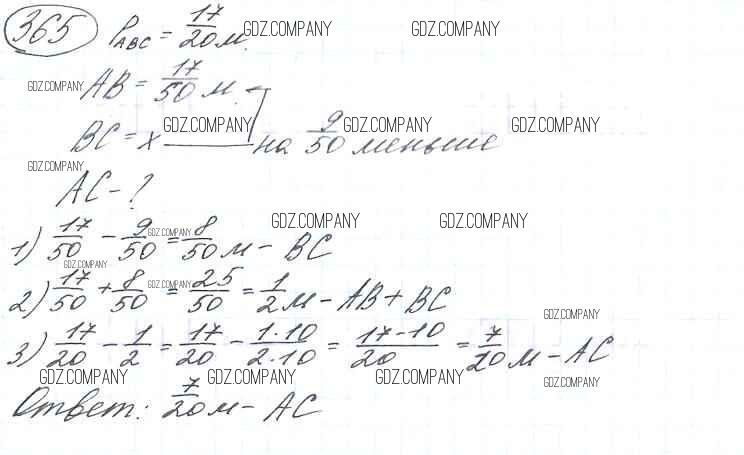 365 P_ABC = 17/20 м. GDZ.COMPANY GDZ.COMPANY
GDZ.COMPANY AB = 17/50 м.
BC = x GDZ.COMPANY на 9/50 меньше GDZ.COMPANY GDZ.COMPANY
GDZ.COMPANY
AC - ?
GDZ.COMPANY GDZ.COMPANY
1) 17/50 - 9/50 GDZ.COMPANY = 8/50 м - BC
GDZ.COMPANY
2) 17/50 + 8/50 GDZ.COMPANY = 25/50 = 1/2 м - AB + BC
GDZ.COMPANY
3) 17/20 - 1/2 = 17/20 - 1·10/2·10 = 17-10/20 = 7/20 м - AC
GDZ.COMPANY GDZ.COMPANY GDZ.COMPANY GDZ.COMPANY
Ответ: 7/20 м - AC